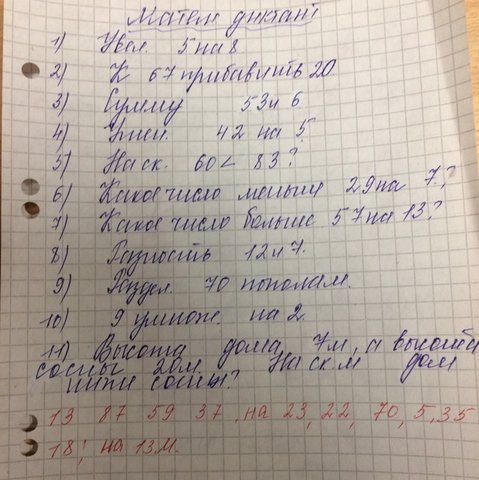 Матем диктант
1) Увел. 5 на 8
2) К 67 прибавить 20
3) Сумму 53 и 6
4) Умен. 42 на 5.
5) На ск. 60 < 83?
6) Какое число меньше 29 на 7?
7) Какое число больше 57 на 13?
8) Разность 12 и 7.
9) Раздел. 70 пополам.
10) 9 умнож. на 2.
11) Высота дома 7м, а высота
сосны 20м. На ск. м дом
ниже сосны?
13 87 59 37, на 23, 22, 70, 5, 35
18; на 13 м.